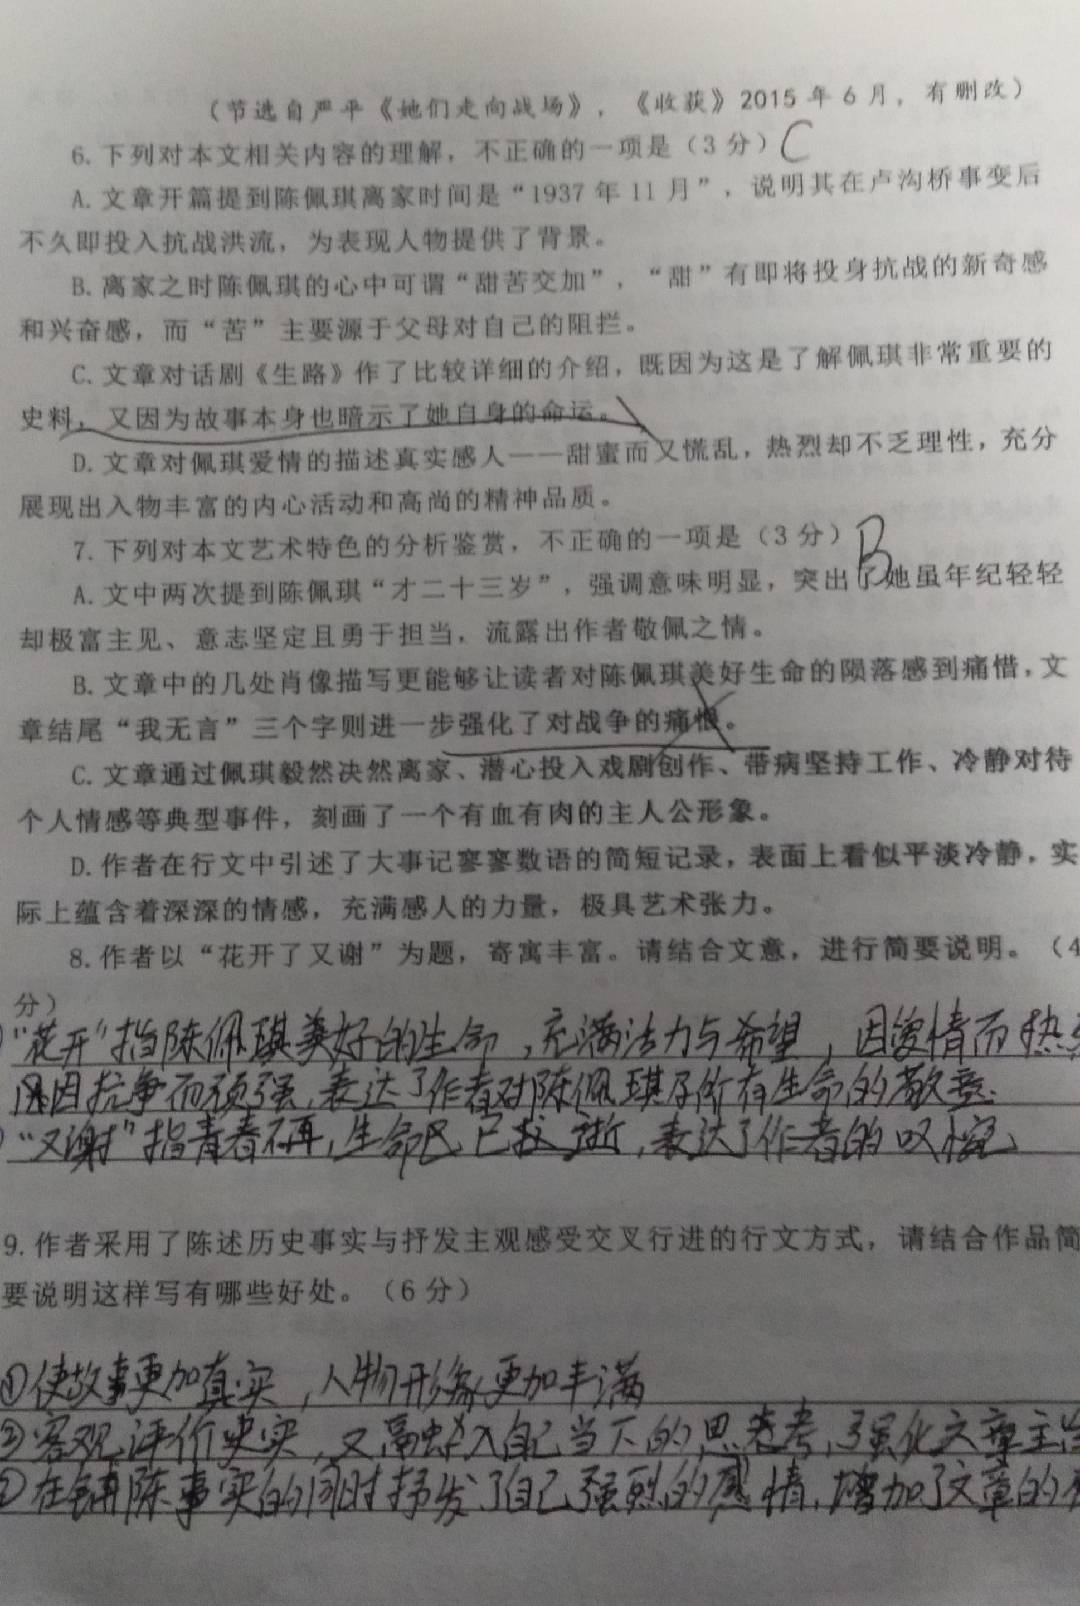 （节选自严平《她们走向战场》，《收获》2015年6月，有删改）
6.下列对本文相关内容的理解，不正确的一项是（3分）C
A.文章开篇提到陈佩琪离家时间是“1937年11月”，说明其在卢沟桥事变后
不久即投入抗战洪流，为表现人物提供了背景。
B.离家之时陈佩琪的心中可谓“甜苦交加”，“甜”有即将投身抗战的新奇感
和兴奋感，而“苦”主要源于父母对自己的阻拦。
C.文章对话剧《生路》作了比较详细的介绍，既因为这是了解佩琪非常重要的
史料，又因为故事本身也暗示了她自身的命运。
D.文章对佩琪爱情的描述真实感人——甜蜜而又慌乱，热烈却不乏理性，充分
展现出人物丰富的内心活动和高尚的精神品质。
7.下列对本文艺术特色的分析鉴赏，不正确的一项是（3分）B
A.文中两次提到陈佩琪“才二十三岁”，强调意味明显，突出了她虽年纪轻轻
却极富主见、意志坚定且勇于担当，流露出作者敬佩之情。
B.文章中的几处肖像描写更能够让读者对陈佩琪美好生命的陨落感到痛惜，文
章结尾“我无言”三个字则进一步强化了对战争的痛恨。
C.文章通过佩琪毅然决然离家、潜心投入戏剧创作、带病坚持工作、冷静对待
个人情感等典型事件，刻画了一个有血有肉的主人公形象。
D.作者在行文中引述了大事记寥寥数语的简短记录，表面上看似平淡冷静，实
际上蕴含着深深的情感，充满感人的力量，极具艺术张力。
8.作者以“花开了又谢”为题，寄寓丰富。请结合文意，进行简要说明。（4
分）
“花开”指陈佩琪美好的生命，充满活力与希望，因爱情而热
因抗争而顽强，表达了作者对陈佩琪及所有生命的敬意.
“又谢”指青春不再，生命已逝，表达了作者的叹惋
9.作者采用了陈述历史事实与抒发主观感受交叉行进的行文方式，请结合作品简
要说明这样写有哪些好处。（6分）
①使故事更加真实，人物形象更加丰满
③客观评价史实，又融入自己当下的思考，强化文章主
②在铺陈事实的同时抒发了自己强烈的感情，增加了文章的